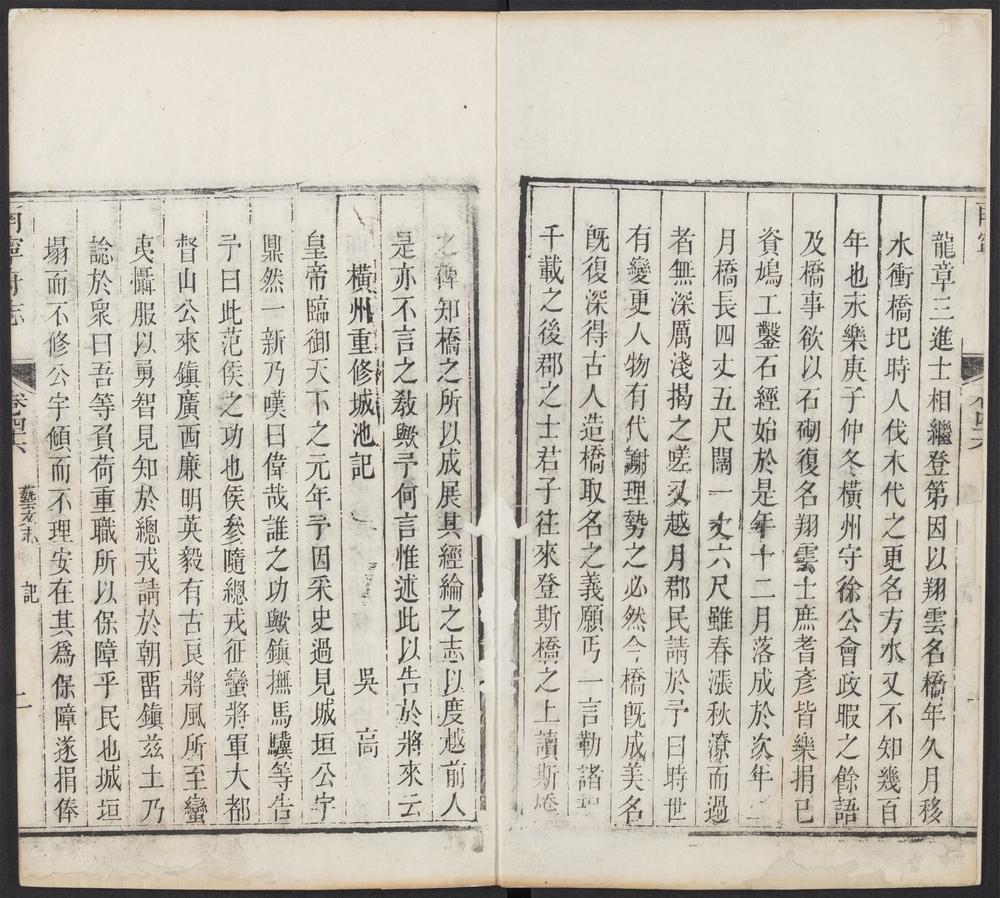 龍章三進士相繼登第因以翔雲名橋年久月移
水衝橋圯時人伐木代之更名方水又不知幾百
年也永樂庚子仲冬橫州守徐公會政暇之餘語
及橋事欲以石砌復名翔雲士庶耆彥皆樂捐已
資鳩工鑿石經始於是年十二月落成於次年
月橋長四丈五尺闊一丈六尺雖春漲秋潦而過
者無深厲淺揭之嗟又越月郡民請於予曰時世
有變更人物有代謝理勢之必然今橋旣成美名
旣復深得古人造橋取名之義願丐一言勒諸
千載之後郡之士君子往來登斯橋之上讀斯
之碑知橋之所以成展其經綸之志以度越前人
是亦不言之敎歟予何言惟述此以告於將來云
橫州重修城池記 吳高
皇帝臨御天下之元年予因采史過見城垣公宇
鼎然一新乃嘆曰偉哉誰之功歟鎮撫馬驥等告
予曰此范侯之功也侯參隨總戎征蠻將軍大都
督山公來鎮廣西廉明英毅有古良將風所至蠻
夷懾服以勇智見知於總戎請於朝畱鎮茲土乃
諗於衆曰吾等負荷重職所以保障乎民也城垣
塌而不修公宇傾而不理安在其爲保障遂捐俸
南寧府志 卷四六 藝文 記 二